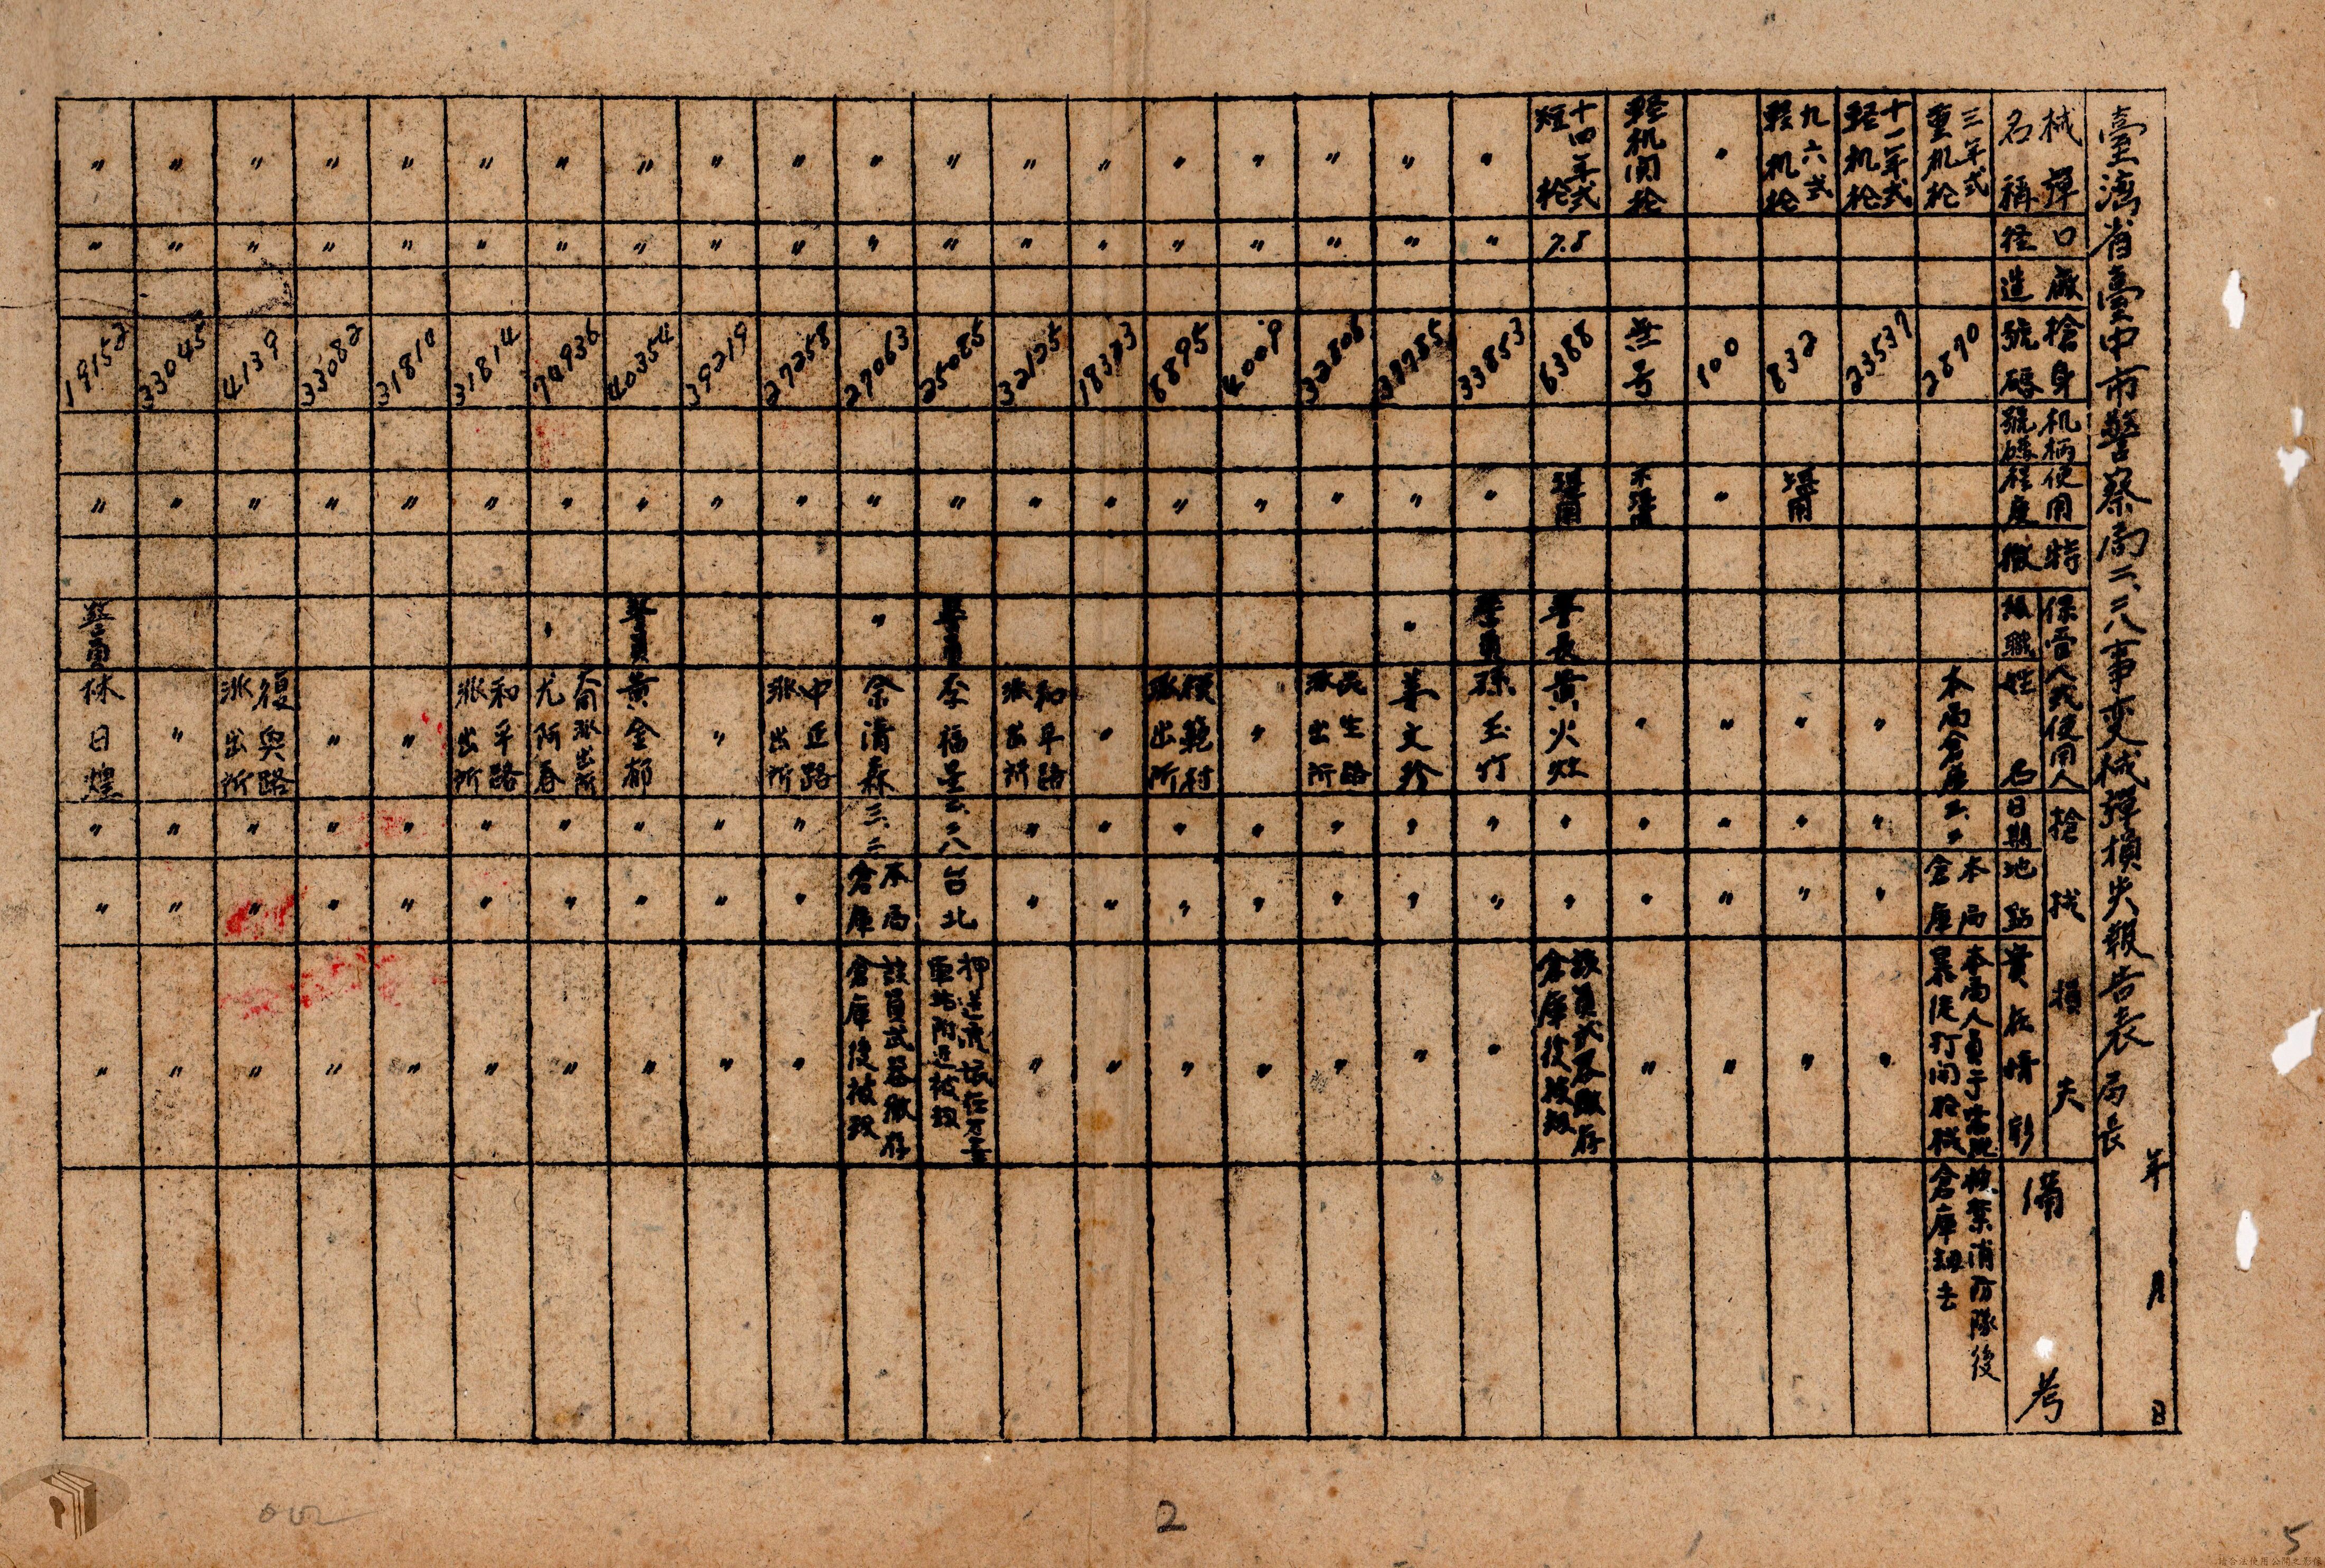 臺灣省臺中市警察局二、二八事変械彈損失報告表 局長
年 月 日
械彈名稱 口径 廠造 槍身號碼 机柄號碼 使用程度 特徵 保管人或使用人 級職 姓名 槍械損失 日期 地點 責任情形 備考
三年式重机枪 2890 本局倉庫 三、二 本局倉庫 本局人員于 暴徒打開枪械 檢察消防隊後倉庫刼去
十一年式軽机枪 23537 〃 〃 〃 〃
九六式軽机枪 832 堪用 〃 〃 〃 〃
〃 100 〃 〃 〃 〃 〃
軽机関枪 無号 不堪用 〃 〃 〃 〃
十四年式短枪 7.8 6388 堪用 警長 黄火灶 〃 〃 該員武器繳存倉庫後被刼
〃 〃 33853 〃 警員 孫玉竹 〃 〃 〃
〃 〃 37985 〃 〃 姜文珍 〃 〃 〃
〃 〃 32806 〃 民生路派出所 〃 〃 〃
〃 〃 4009 〃 〃 〃 〃 〃
〃 〃 6895 〃 模範村派出所 〃 〃 〃
〃 〃 18383 〃 〃 〃 〃 〃
〃 〃 32125 〃 和平路派出所 〃 〃 〃
〃 〃 25085 〃 警員 李福星 二、二八 台北 押送流氓在万華車站附近被刼
〃 〃 27063 〃 〃 余清森 三、二 本局倉庫 該員武器繳存倉庫後被刼
〃 〃 27258 〃 中正路派出所 〃 〃 〃
〃 〃 39219 〃 〃 〃 〃 〃
〃 〃 40354 〃 警員 黄金郁 〃 〃 〃
〃 〃 74936 〃 〃 派出所 尤阿春 〃 〃 〃
〃 〃 31814 〃 和平路派出所 〃 〃 〃
〃 〃 31810 〃 〃 〃 〃 〃
〃 〃 33082 〃 〃 〃 〃 〃
〃 〃 4139 〃 復興路派出所 〃 〃 〃
〃 〃 33045 〃 〃 〃 〃 〃
〃 〃 19152 〃 警員 林日煌 〃 〃 〃
2
5